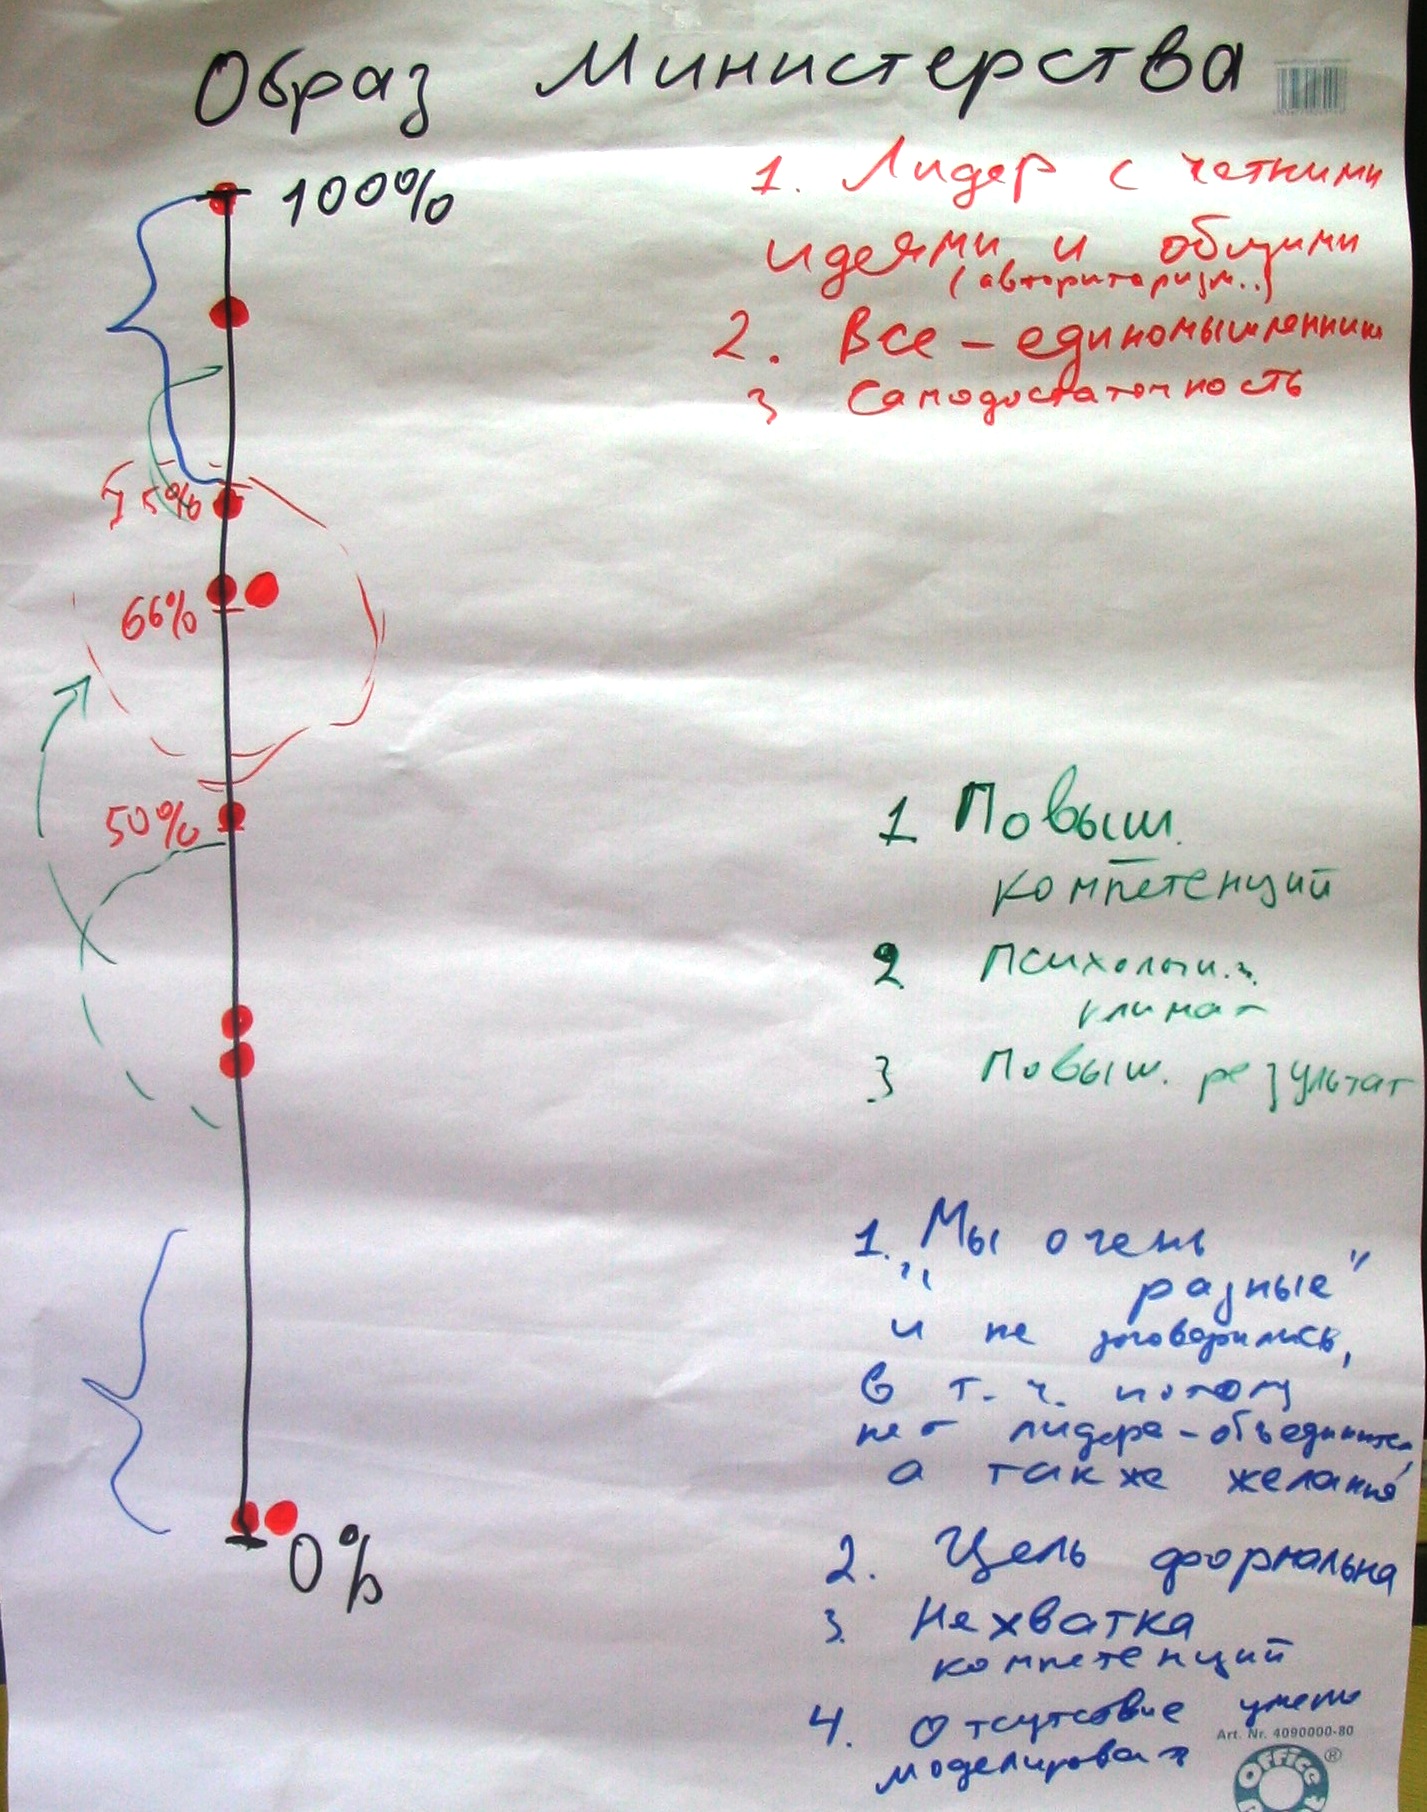 Образ Министерства
100%
1. Лидер с четкими
идеями и общими
(авторитаризм..)
2. Все – единомышленники
3 Самодостаточность
75%
66%
50%
1 Повыш.
компетенций
2 Психологич.
климат
3 Повыш. результат
1. Мы очень
" разные"
и не договорились,
в т. ч. потому
нет лидера-объединителя,
а также желания
2. Цель формальна
3. Нехватка
компетенций
4. Отсутсвие
моделирован
0%
Art. Nr. 4090000-80
Office